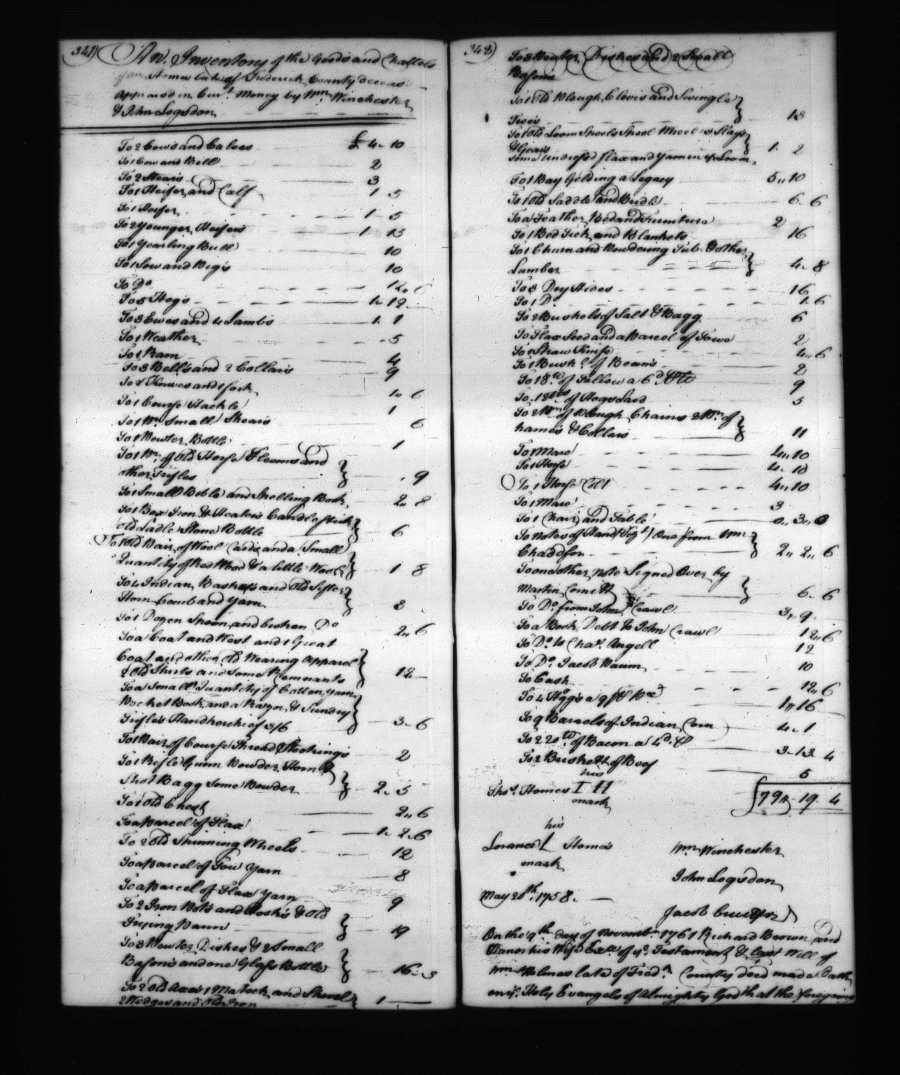 341)
An Inventory of the Goods and Chattels
Homes late of Frederick County deceas
Appraisd in Curt. Money by Wm. Winchester
& John Logsdon
To 2 Cows and Calves £ 4 - 10
To 1 Cow and Bell 2
To 2 Stears 3
To 1 Heifer and Calf 1 5
To 1 Heifer 1 5
To 2 Younger Heifers 1 15
To 1 Yearling Bull 10
To 1 Sow and Pigs 10
To Do 12,, 6
To 5 Hogs 1,, 12
To 3 Ewes and 4 Lambs 1 1
To 1 Weather 5
To 1 Ram 4
To 3 Bells and 2 Collars 9
1,, 6
To 1 Course Hackle 1
To 1 Pr. Small Shears 6
To 1 Pewter Bottle 1
To 1 Pr. of old Horse Fleams and
other Trifles } 9
To 1 Small Bible and Spelling Book 2,, 8
To 1 Box Iron & Heaters Candlestick
old Ladle Stone Bottle } 6
To 1 Old Pair of Wool Cards and a Small
Quantity of Red Wood & a little Wool } 1 8
To 4 Indian Baskets and old Sifter
Horn Comb and Yarn } 3
To 1 Dozen Spoons and broken Do 2,, 6
To a Coat and Vest and 1 Great
Coat and other old Wearing Apparel
2 old Shirts and Some Remnants } 12
To a Small Quantity of Cotton yarn
Pocket Book and a Razor & Sundry
Trifles Handkerchief 3/6 } 3 - 6
To 1 Pair of Course Thread Stockings 2
To 1 Rifle Gunn Powder Horn &
Shot Bagg Some Powder } 2 - 5
To 1 old Chest 2,, 6
To a Parcel of Flax 1 - 2 - 6
To 2 old Spinning Wheels 12
To a Parcel of Tow Yarn 8
To a Parcel of Flax Yarn 9
To 2 Iron Pots and Hooks & old
Frying Pann } 19
To 3 Pewter Dishes & 2 Small
Basons and one Glass Bottle } 16 - 3
To 2 old Axes 1 Matock and Shovel
2 Wedges and old Iron } 1
342)
To 3 Pewter Dishes and 2 Small
Basons
To 1 Old Plough Clevis and Swingle
Trees } 13
To 1 Old Loom Spools Spool Wheel 3 Slays
& Gears } 1 - 2
Some undressed flax and yarn in ye Loom
To 1 Bay Gelding a Legacy 5,, 10
To 1 Old Saddle and Bridle 6 - 6
To a Feather Bed and Furniture 2
To 1 Bed Tick and Blankets 16
To 1 Churn and Powdering Tub & other
Lumber } 4 - 8
To 3 Dry Hides 16
To 1 Do. 1 6
To 2 Bushels of Salt & Bagg 6
To Flax Seed and a Parcel of Towe 2
To 1 Straw 4,, 6
To 1 Bushl. of Beans 2
To 18 lb of Tallow a 6d. 9
To 12 lb of Hogs Lard 5
To 2 Pr. of Plough Chains 2 Pr. of
hames & Collars } 11
To 1 Mare 4,, 10
To 1 Horse 4 - 10
To 1 Horse Colt 4,, 10
To 1 Mare 3
To 1 Chair and Table 0,, 3,, 0
To Notes of Hand (Vizt) One from Wm.
Chaddfor } 2,, 2,, 6
To one other note Signed Over by
Martin } 6 - 6
To Do. from John Crawl 3,, 9
To a Book Debt to John Crawl 12,, 6
To Do. to Chas. Angell 12
To Do. Jacob Naum 10
To Cash 12,, 6
To 4 Hogs 1,, 16
To 9 Barrels of Indian Corn 4,, 1
To 220 lb of Bacon a 4d. 3 - 13 4
To 2 Bushells of 5
£ 79,, 19 - 4
his
Thos. Homes I H
mark
his
Homes
mark
Wm. Winchester
John Logsdon
May 25th. 1758.
Jacob
On the 9th. day of November 1761 Richard Brown and
his Wife Exx. of ye. Testament & last Will of
Wm Holmes late of Fredk. County deced made Oath
on ye. Holy Evangels of Almighty God that the foregoing